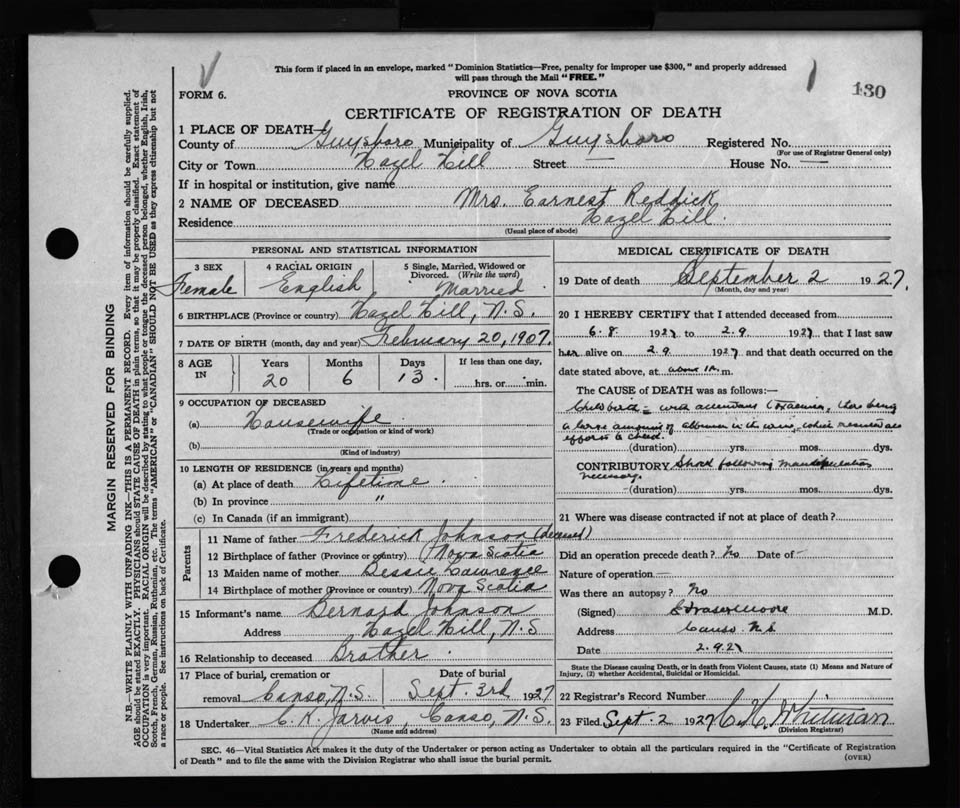 This form if placed in an envelope, marked "Dominion Statistics—Free, penalty for improper use $300," and properly addressed
will pass through the Mail "FREE."
130
FORM 6.
PROVINCE OF NOVA SCOTIA
CERTIFICATE OF REGISTRATION OF DEATH
1 PLACE OF DEATH—
County of Guysboro Municipality of Guysboro Registered No.
(For use of Registrar General only)
City or Town Hazel Hill Street — House No. —
If in hospital or institution, give name
2 NAME OF DECEASED Mrs. Earnest Reddick
Residence Hazel Hill.
(Usual place of abode)
MARGIN RESERVED FOR BINDING
N.B.—WRITE PLAINLY WITH UNFADING INK—THIS IS A PERMANENT RECORD. Every item of information should be carefully supplied.
AGE should be stated EXACTLY. PHYSICIANS should STATE CAUSE OF DEATH in plain terms, so that it may be properly classified. Exact statement of
OCCUPATION is very important. RACIAL ORIGIN will be described by stating to what people or tongue the deceased person belonged, whether English, Irish,
Scotch, French, German, Russian, Ruthenian, etc. The terms "AMERICAN" or "CANADIAN" SHOULD NOT BE USED as they express citizenship but not
a race or people. See instructions on back of Certificate.
PERSONAL AND STATISTICAL INFORMATION
3 SEX
Female
4 RACIAL ORIGIN
English
5 Single, Married, Widowed or
Divorced. (Write the word)
Married
6 BIRTHPLACE (Province or country) Hazel Hill, N.S.
7 DATE OF BIRTH (month, day and year) February 20, 1907.
8 AGE IN
Years Months Days If less than one day,
20 6 13. hrs. or min.
9 OCCUPATION OF DECEASED
(a) Housewife
(Trade or occupation or kind of work)
(b)
(Kind of industry)
10 LENGTH OF RESIDENCE (in years and months)
(a) At place of death Lifetime.
(b) In province "
(c) In Canada (if an immigrant)
Parents
11 Name of father Frederick Johnson (deceased)
12 Birthplace of father (Province or country) Nova Scotia
13 Maiden name of mother Bessie Lawrence
14 Birthplace of mother (Province or country) Nova Scotia
15 Informant's name Bernard Johnson
Address Hazel Hill, N.S
16 Relationship to deceased Brother.
17 Place of burial, cremation or Date of burial
removal Canso, N.S. Sept. 3rd 1927
18 Undertaker C. H. Jarvis, Canso, N.S.
(Name and address)
MEDICAL CERTIFICATE OF DEATH
19 Date of death September 2 1927.
(Month, day and year)
20 I HEREBY CERTIFY that I attended deceased from
6.8. 1927 to 2.9. 1927 that I last saw
her alive on 2.9. 1927 and that death occurred on the
date stated above, at about 1 m.
The CAUSE of DEATH was as follows:—
Childbirth with attendant Eclampsia, there being
a large amount of albumen in the urine, which resisted all
efforts to check.
(duration) yrs. mos. dys.
CONTRIBUTORY Shock following
necessary.
(duration) yrs. mos. dys.
21 Where was disease contracted if not at place of death?
Did an operation precede death? No Date of —
Nature of operation —
Was there an autopsy? No
(Signed) Moore M.D.
Address Canso N.S
Date 2.9.27
State the Disease causing Death, or in death from Violent Causes, state (1) Means and Nature of
Injury, (2) whether Accidental, Suicidal or Homicidal.
22 Registrar's Record Number
23 Filed Sept. 2 1927 C. H. Whitman
(Division Registrar)
SEC. 46—Vital Statistics Act makes it the duty of the Undertaker or person acting as Undertaker to obtain all the particulars required in the "Certificate of Registration
of Death" and to file the same with the Division Registrar who shall issue the burial permit.
(OVER)